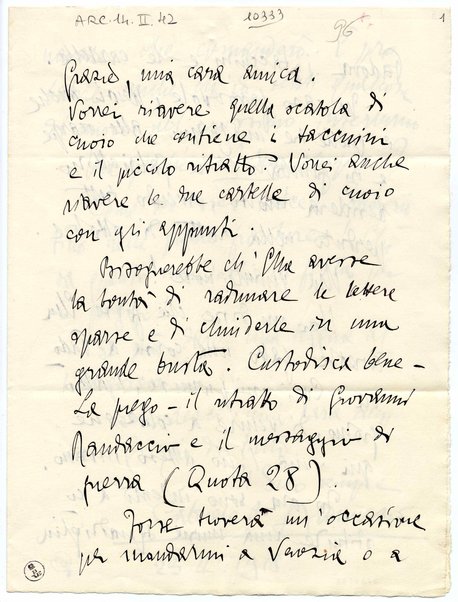 ARC. 14. II. 42
10333
96
1
Grazie, mia cara amica.
Vorrei riavere quella scatola di
cuoio che contiene i taccuini
e il piccolo ritratto. Vorrei anche
riavere le due cartelle di cuoio
con gli appunti.
Bisognerebbe ch'Ella avesse
la bontà di radunare le lettere
sparse e di chiuderle in una
grande busta. Custodisca bene –
La prego – il ritratto di Giovanni
Randaccio e il messaggio di
guerra (Quota 28)
Forse troverà un'occasione
per mandarmi a Venezia o a